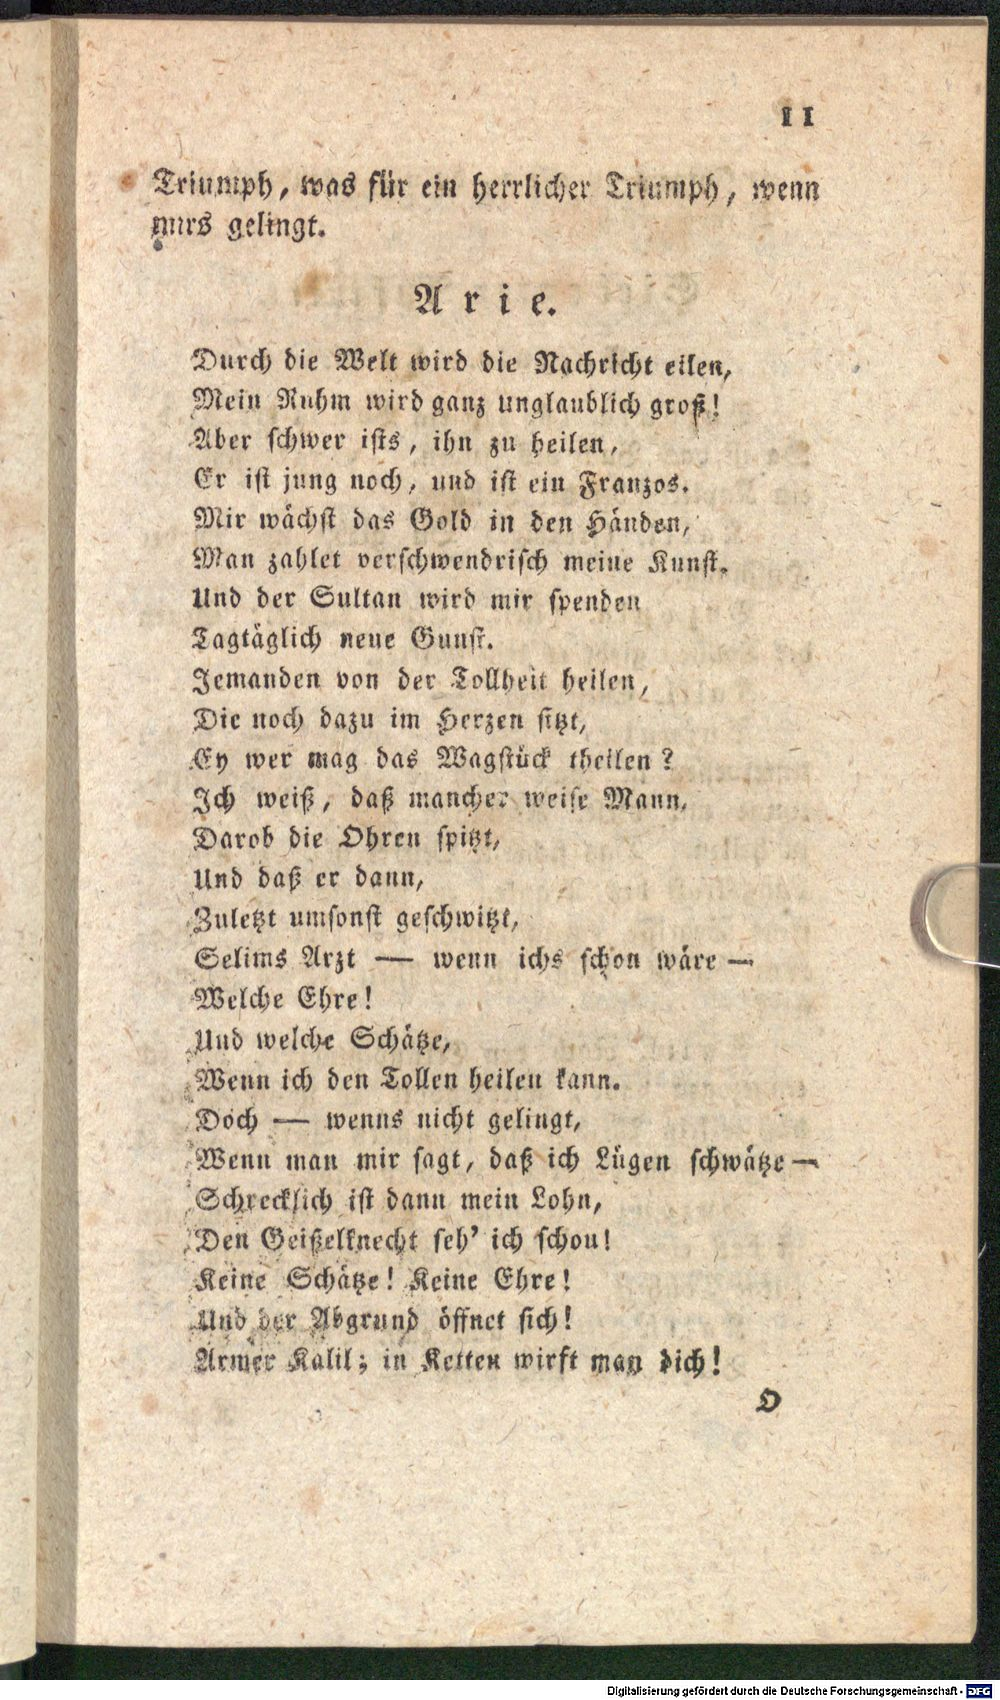 11
Triumph, was für ein herrlicher Triumph, wenn
nurs gelingt.
Arie.
Durch die Welt wird die Nachricht eilen,
Mein Ruhm wird ganz unglaublich groß!
Aber schwer ists, ihn zu heilen,
Er ist jung noch, und ist ein Franzos.
Mir wächst das Gold in den Händen,
Man zahlet verschwendrisch meine Kunst.
Und der Sultan wird mir spenden
Tagtäglich neue Gunst.
Jemanden von der Tollheit heilen,
Die noch dazu im Herzen sitzt,
Ey wer mag das Wagstück theilen?
Ich weiß, daß mancher weise Mann,
Darob die Ohren spitzt,
Und daß er dann,
Zuletzt umsonst geschwitzt,
Selims Arzt — wenn ichs schon wäre —
Welche Ehre!
Und welche Schätze,
Wenn ich den Tollen heilen kann.
Doch — wenns nicht gelingt,
Wenn man mir sagt, daß ich Lügen schwätze —
Schrecklich ist dann mein Lohn,
Den Geißelknecht seh' ich schon!
Keine Schätze! Keine Ehre!
Und der Abgrund öffnet sich!
Armer Kalil; in Ketten wirft man dich!
O
Digitalisierung gefördert durch die Deutsche Forschungsgemeinschaft - DFG